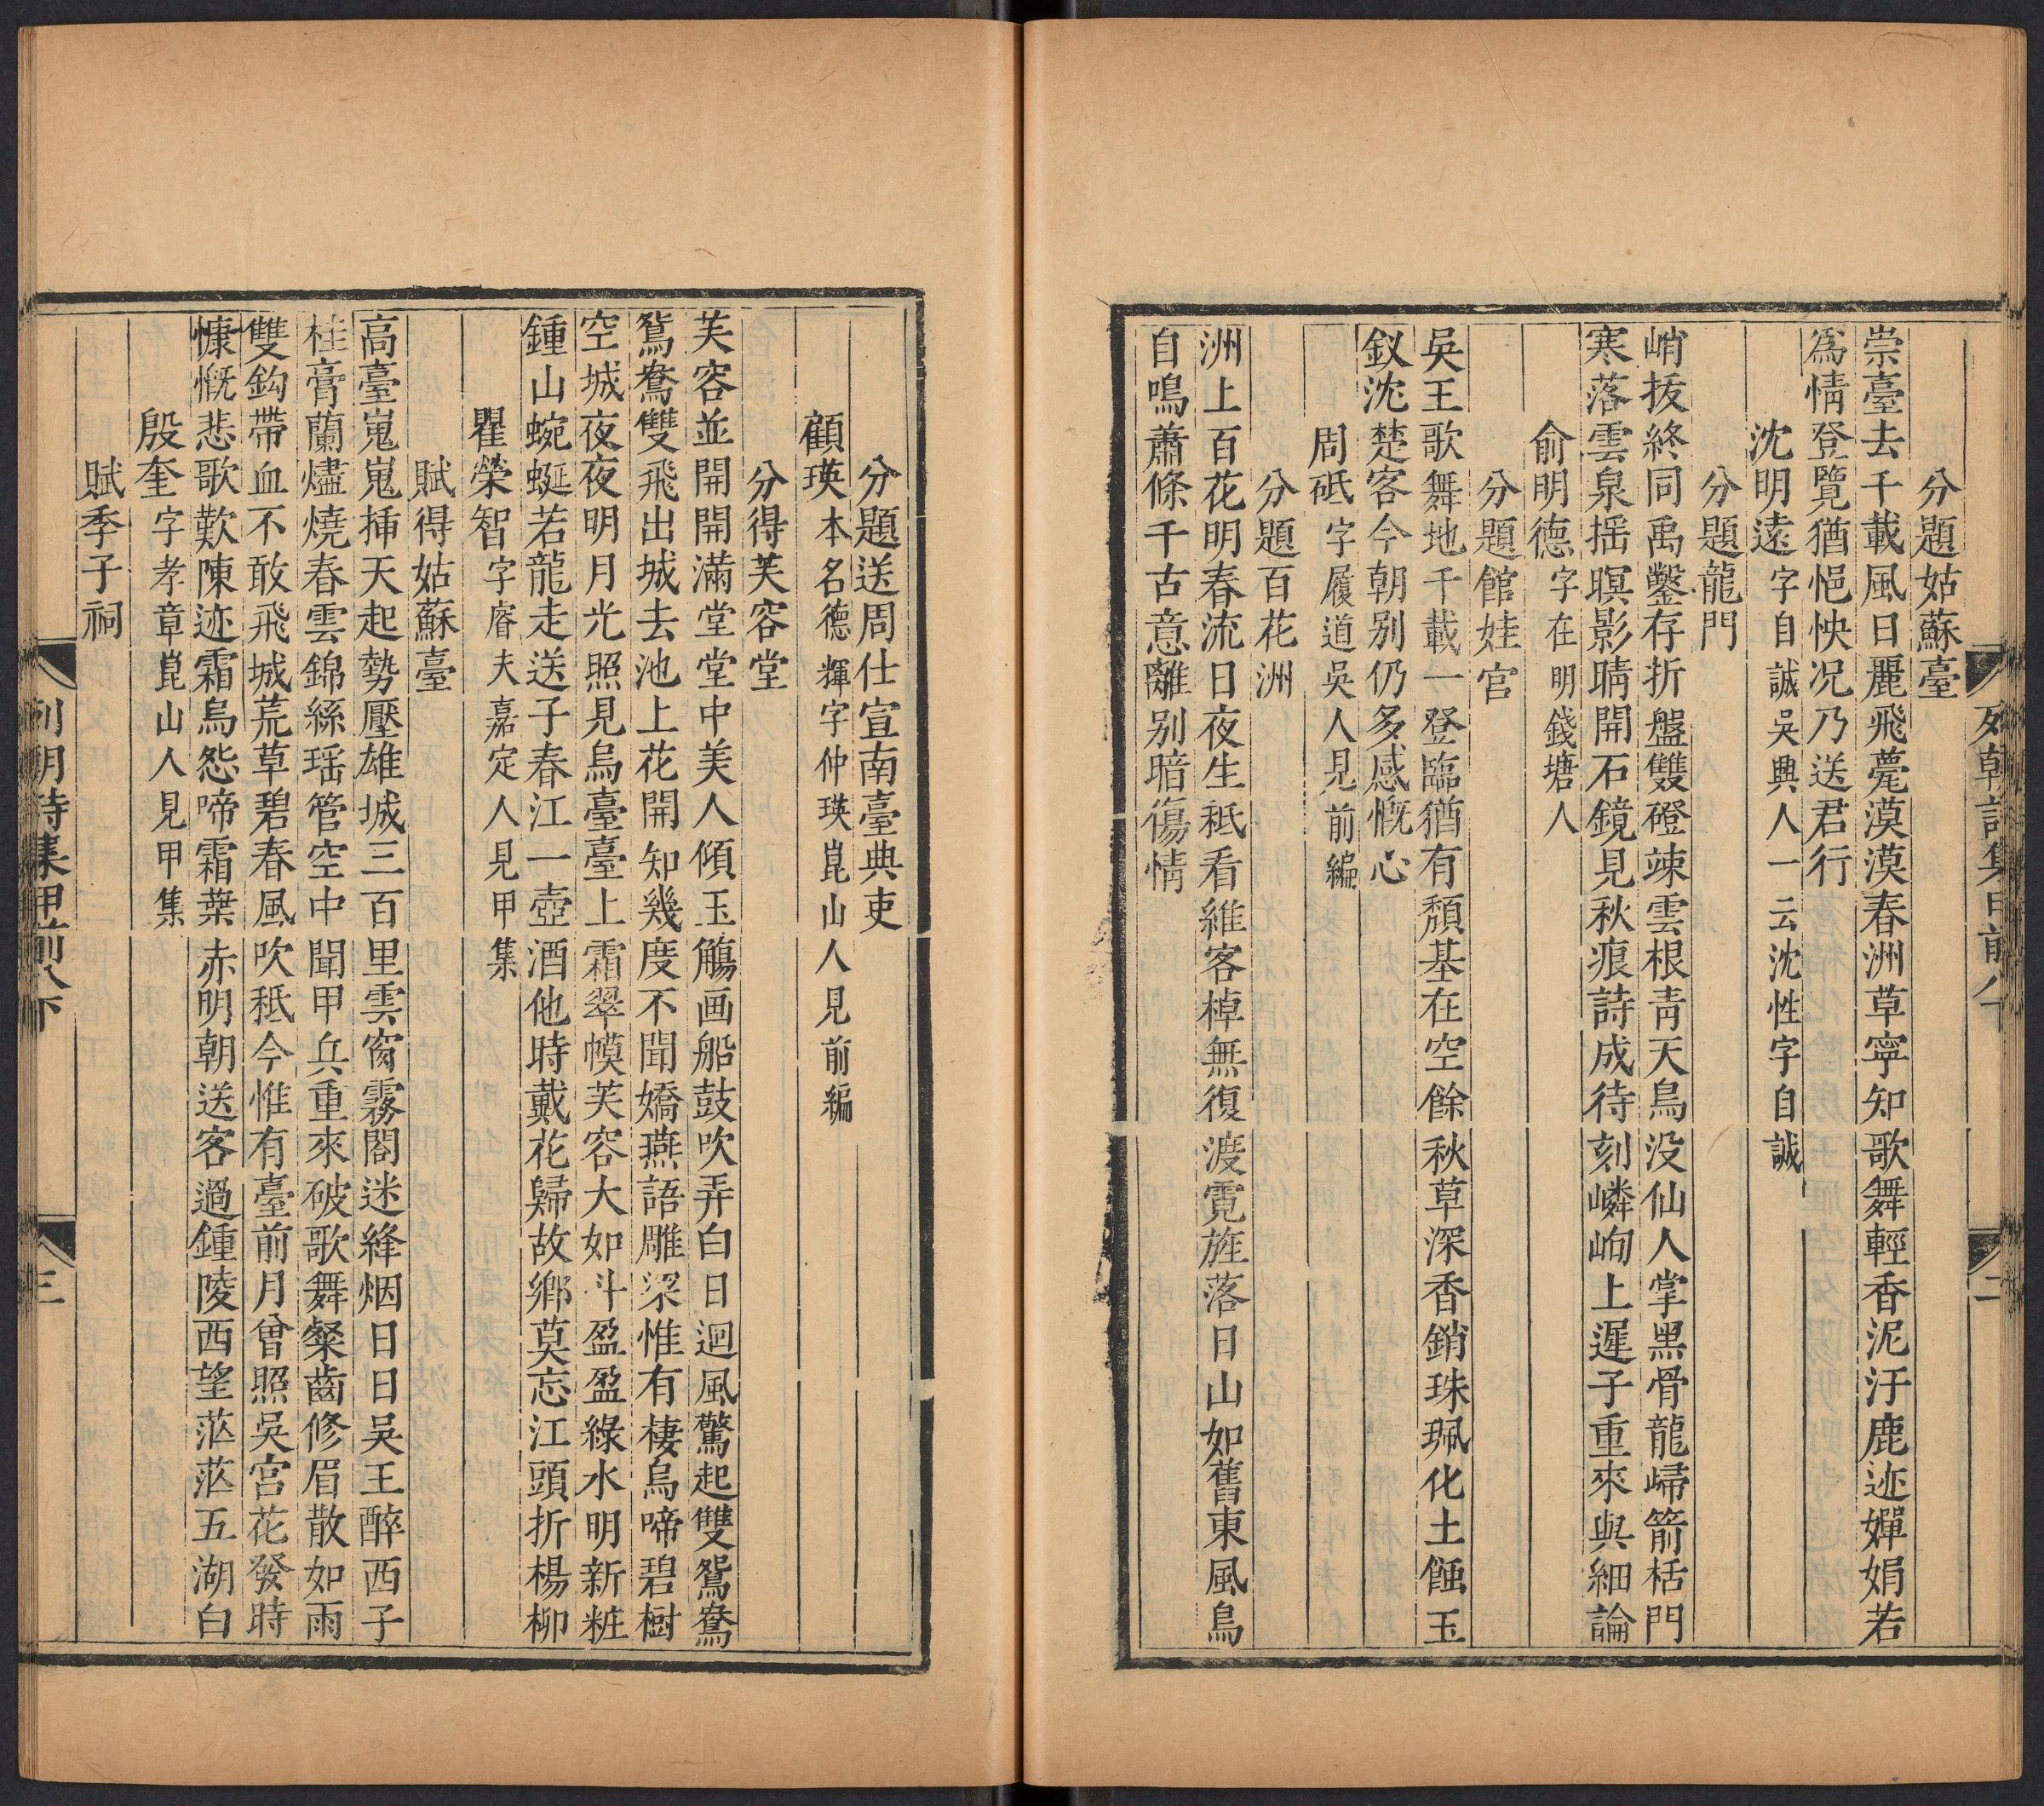 分題姑蘇臺
崇臺去千載風日麗飛甍漠漠春洲草寧知歌舞輕香泥汙鹿迹嬋娟若
爲情登覽猶悒怏况乃送君行
沈明遠字自誠吳興人一云沈性字自誠
分題龍門
峭拔終同禹鑿存折盤雙磴竦雲根靑天鳥没仙人掌黑骨龍歸箭栝門
寒落雲泉揺暝影晴開石鏡見秋痕詩成待刻嶙峋上遲子重來與細論
俞明德字在明錢塘人
分題館娃宮
吳王歌舞地千載一登臨猶有頽基在空餘秋草深香銷珠珮化土蝕玉
釵沈楚客今朝别仍多感慨心
周砥字履道吳人見前編
分題百花洲
洲上百花明春流日夜生秪看維客棹無復渡霓旌落日山如舊東風鳥
自鳴蕭條千古意離别暗傷情
列朝詩集甲前八
二
分題送周仕宣南臺典吏
顧瑛本名德輝字仲瑛崑山人見前編
分得芙容堂
芙容並開開滿堂堂中美人傾玉觴画船鼓吹弄白日迴風驚起雙鴛鴦
鴛鴦雙飛出城去池上花開知幾度不聞嬌燕語雕梁惟有棲烏啼碧樹
空城夜夜明月光照見烏臺臺上霜翠幙芙容大如斗盈盈綠水明新粧
鍾山蜿蜒若龍走送子春江一壺酒他時戴花歸故鄉莫忘江頭折楊柳
瞿榮智字睿夫嘉定人見甲集
賦得姑蘇臺
高臺嵬嵬揷天起勢壓雄城三百里雲窗霧閣迷絳烟日日吳王醉西子
桂膏蘭燼燒春雲錦絲瑶管空中聞甲兵重來破歌舞粲齒修眉散如雨
雙鈎帶血不敢飛城荒草碧春風吹秪今惟有臺前月曾照吳宮花發時
慷慨悲歌歎陳迹霜烏怨啼霜葉赤明朝送客過鍾陵西望茫茫五湖白
殷奎字孝章崑山人見甲集
賦季子祠
列朝詩集甲前八下
三